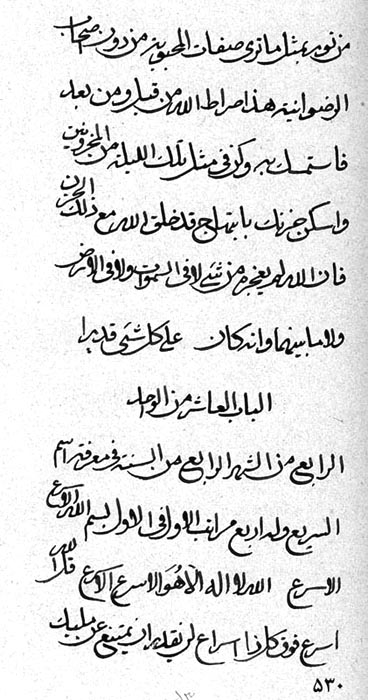 من نوره بمثل ما ترى صفات المحبوبية من دون اصحاب
الرضوانية هذا صراط الله من قبل ومن بعد
فاستمسك به وكن في مثل تلك الليلة من المحزونين
واسكن حزنك بابتهاج قد خلق الله مع ذلك الحزن
فان الله لم يعجزه من شيء لا في السموات ولا في الارض
ولا ما بينهما وانه كان على كل شيء قديرا
الباب العاشر من الواحد
الرابع من الشهر الرابع من السنة في معرفة اسم
السريع وله اربع مراتب الاول في الاول بسم الله الاسرع
الاسرع الله لا اله الا هو الاسرع الاسرع قل الله
اسرع فوق كل ذا اسراع لن يقدر ان يمتنع عن مليك
٥٣٠